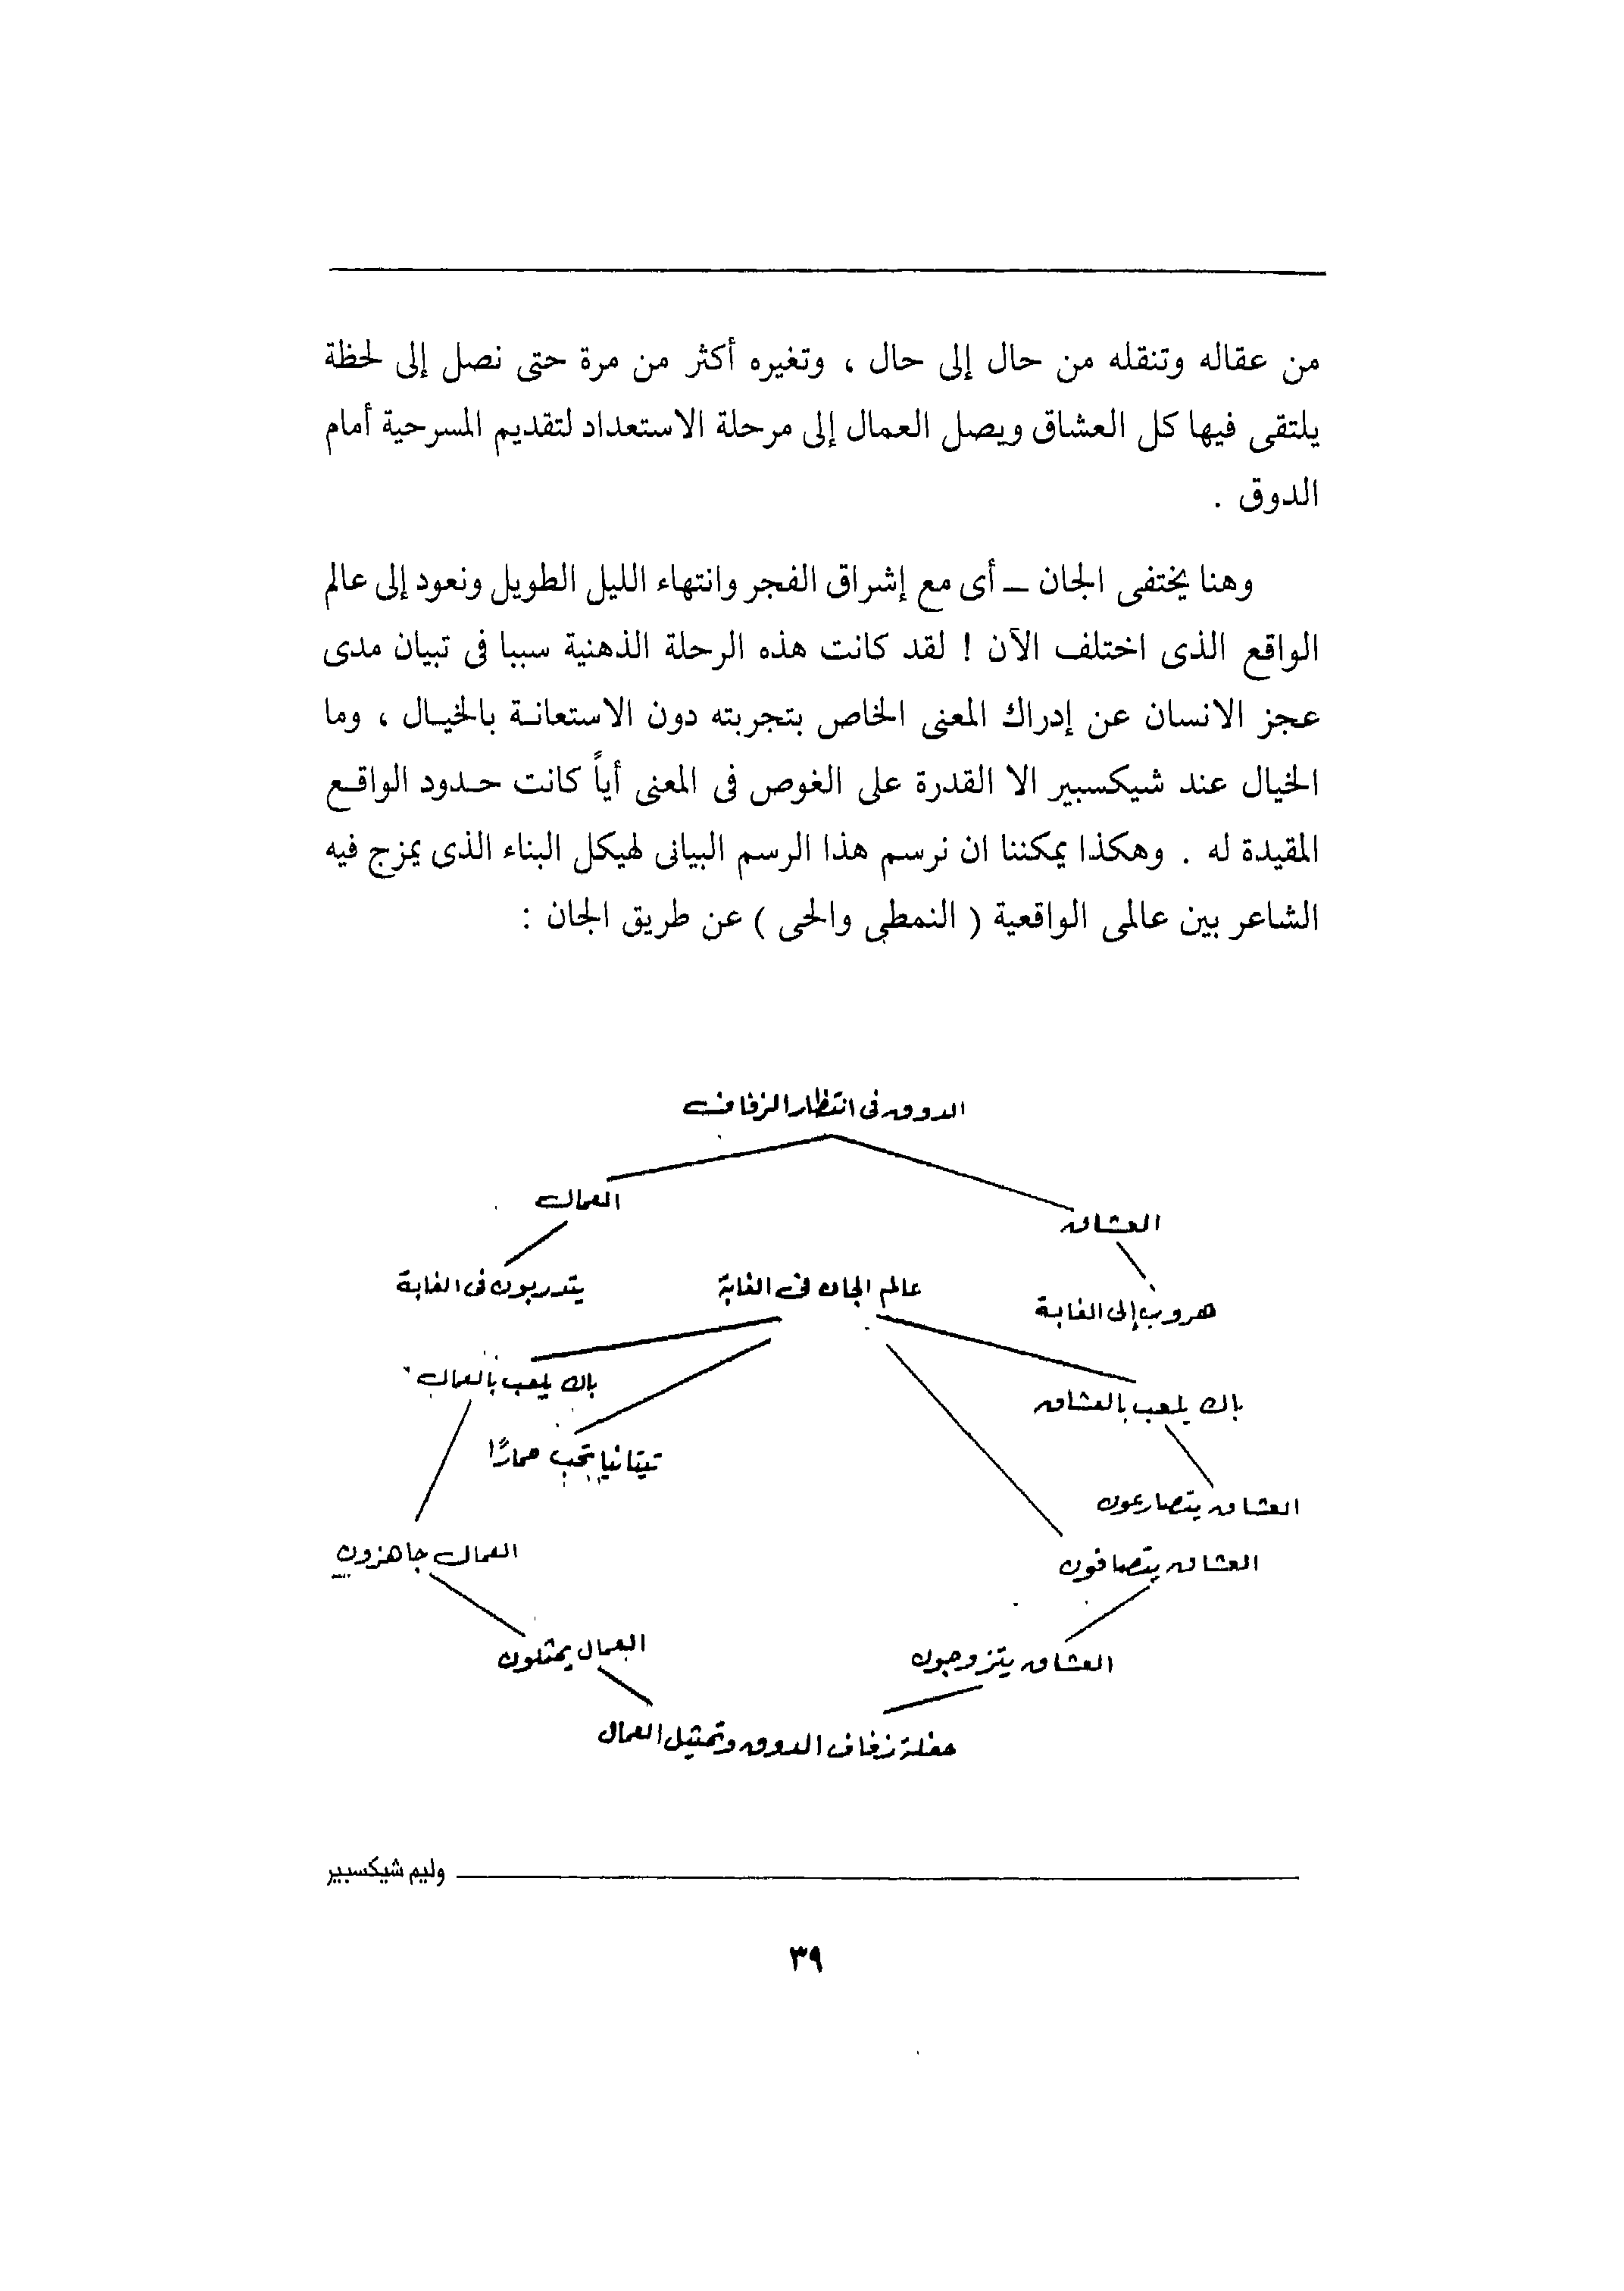 من عقاله وتنقله من حال إلى حال ، وتغيره أكثر من مرة حتى نصل إلى لحظة
يلتقى فيها كل العشاق ويصل العمال إلى مرحلة الاستعداد لتقديم المسرحية أمام
الدوق .
وهنا يختفى الجان ــ أى مع إشراق الفجر وانتهاء الليل الطويل ونعود إلى عالم
الواقع الذى اختلف الآن ! لقد كانت هذه الرحلة الذهنية سببا فى تبيان مدى
عجز الانسان عن إدراك المعنى الخاص بتجربته دون الاستعانة بالخيال ، وما
الخيال عند شيكسبير الا القدرة على الغوص فى المعنى أياً كانت حدود الواقع
المقيدة له . وهكذا يمكننا ان نرسم هذا الرسم البيانى لهيكل البناء الذى يمزج فيه
الشاعر بين عالمى الواقعية ( النمطى والحى ) عن طريق الجان :
الدوق فى انتظار الزفاف
العمال
العشاق
يتدربون فى الغابة
عالم الجان فى الغابة
هروب إلى الغابة
باك يلعب بالعمال
باك يلعب بالعشاق
تيتانيا تحب حمارًا
العشاق يتصارعون
العمال جاهزون
العشاق يتصافون
العمال يمثلون
العشاق يتزوجون
حفلة زفاف الدوق وتمثيل العمال
وليم شيكسبير
٣٩